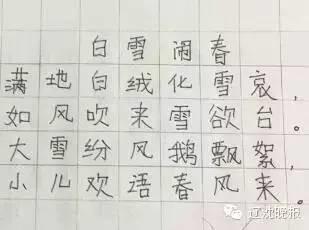 白雪闹春
满地白绒化雪哀，
如风吹来雪欲台。
大雪纷风鹅飘絮，
小儿欢语春风来。
辽沈晚报